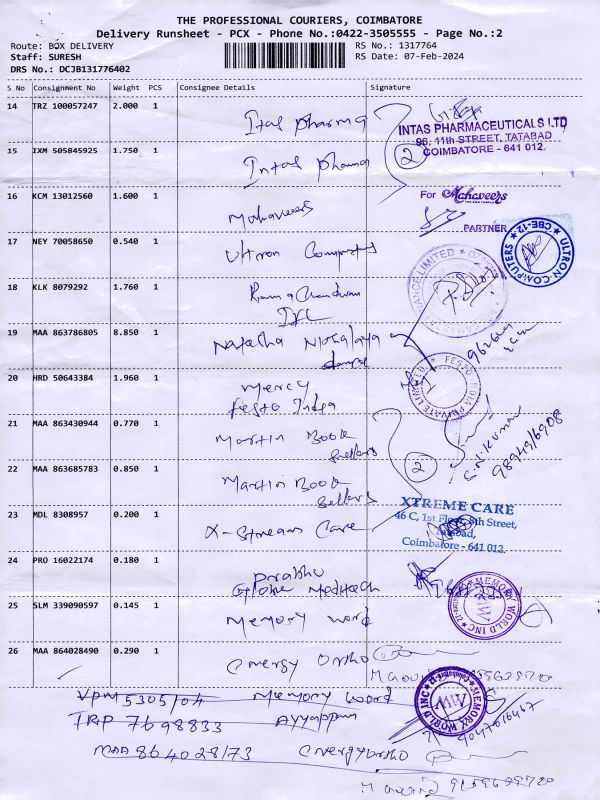 THE PROFESSIONAL COURIERS, COIMBATORE
Delivery Runsheet - PCX - Phone No.:0422-3505555 - Page No.:2
Route: BOX DELIVERY RS No.: 1317764
Staff: SURESH RS Date: 07-Feb-2024
DRS No.: DCJB131776402
S No Consignment No Weight PCS Consignee Details Signature
14 TRZ 100057247 2.000 1 Itas pharma
INTAS PHARMACEUTICALS LTD
96, 11th STREET, TATABAD
COIMBATORE - 641 012.
15 IXM 505845925 1.750 1 Intas pharma 2
16 KCM 13012560 1.600 1 Mahaveers
For Mahaveers
PARTNER
17 NEY 70058650 0.540 1 Ultron
ULTRON COMPUTERS CBE-12
18 KLK 8079292 1.760 1
19 MAA 863786805 8.850 1 Natasha
20 HRD 50643384 1.960 1 Mercy
Festo India
21 MAA 863430944 0.770 1 Martin Book
Sellers
22 MAA 863685783 0.850 1 Martin Book 2
Sellers
23 MDL 8308957 0.200 1 X-Stream Care
XTREME CARE
46 C, 1st Floor, 8th Street,
Tatabad,
Coimbatore - 641 012.
24 PRO 16022174 0.180 1 Prabhu
Globe Meditech
25 SLM 339090597 0.145 1 Memory word
MEMORY WORLD INC MW
26 MAA 864028490 0.290 1 Energy ortho
VPM 5305704 Memory word
MEMORY WORLD INC MW
TRP 7698833 Ayyappan
MAA 864028173 Energy ortho